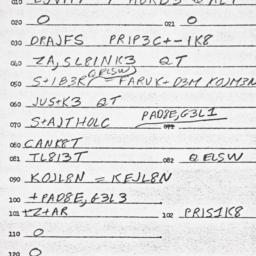 010
020 0 021 0
030 DRAJFS PRIP3C+-1K8
040 ZA,SL81NK3 QT
QELSW
050 S+1B3K) = FARUK+D3M KOJM3N
060 JUS+K3 QT
070 S+AJTHOLC PAD8E,G3L1
080 CANK8T
081 TL8I3T 082 QELSW
090 KOJL8N = KEJL8N
100 +PAD8E,G3L3
101 +Z+AR 102 PRIS1K8
110 0
120 0